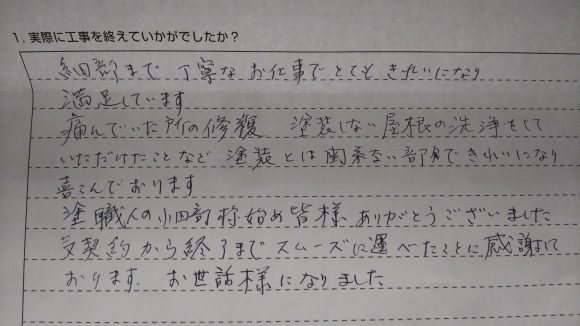 1. 実際に工事を終えていかがでしたか？
細部まで 丁寧な お仕事で とても きれいになり
満足しています
痛んでいた所の修復 塗装しない屋根の洗浄をして
いただけたことなど 塗装とは関系ない部分できれいになり
喜こんでおります
塗職人の小田部様始め皆様 ありがとうございました
契約から終了までスムーズに運べたことに感謝して
おります、 お世話様になりました